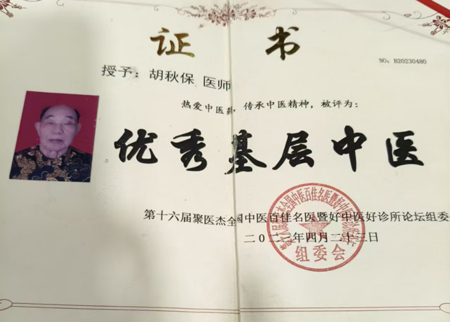 证书
NO: H20230480
授予：胡秋保 医师
热爱中医药 传承中医精神，被评为：
优秀基层中医
第十六届聚医杰全国中医百佳名医暨好中医好诊所论坛组委
二〇二 年四月二十三日
组委会